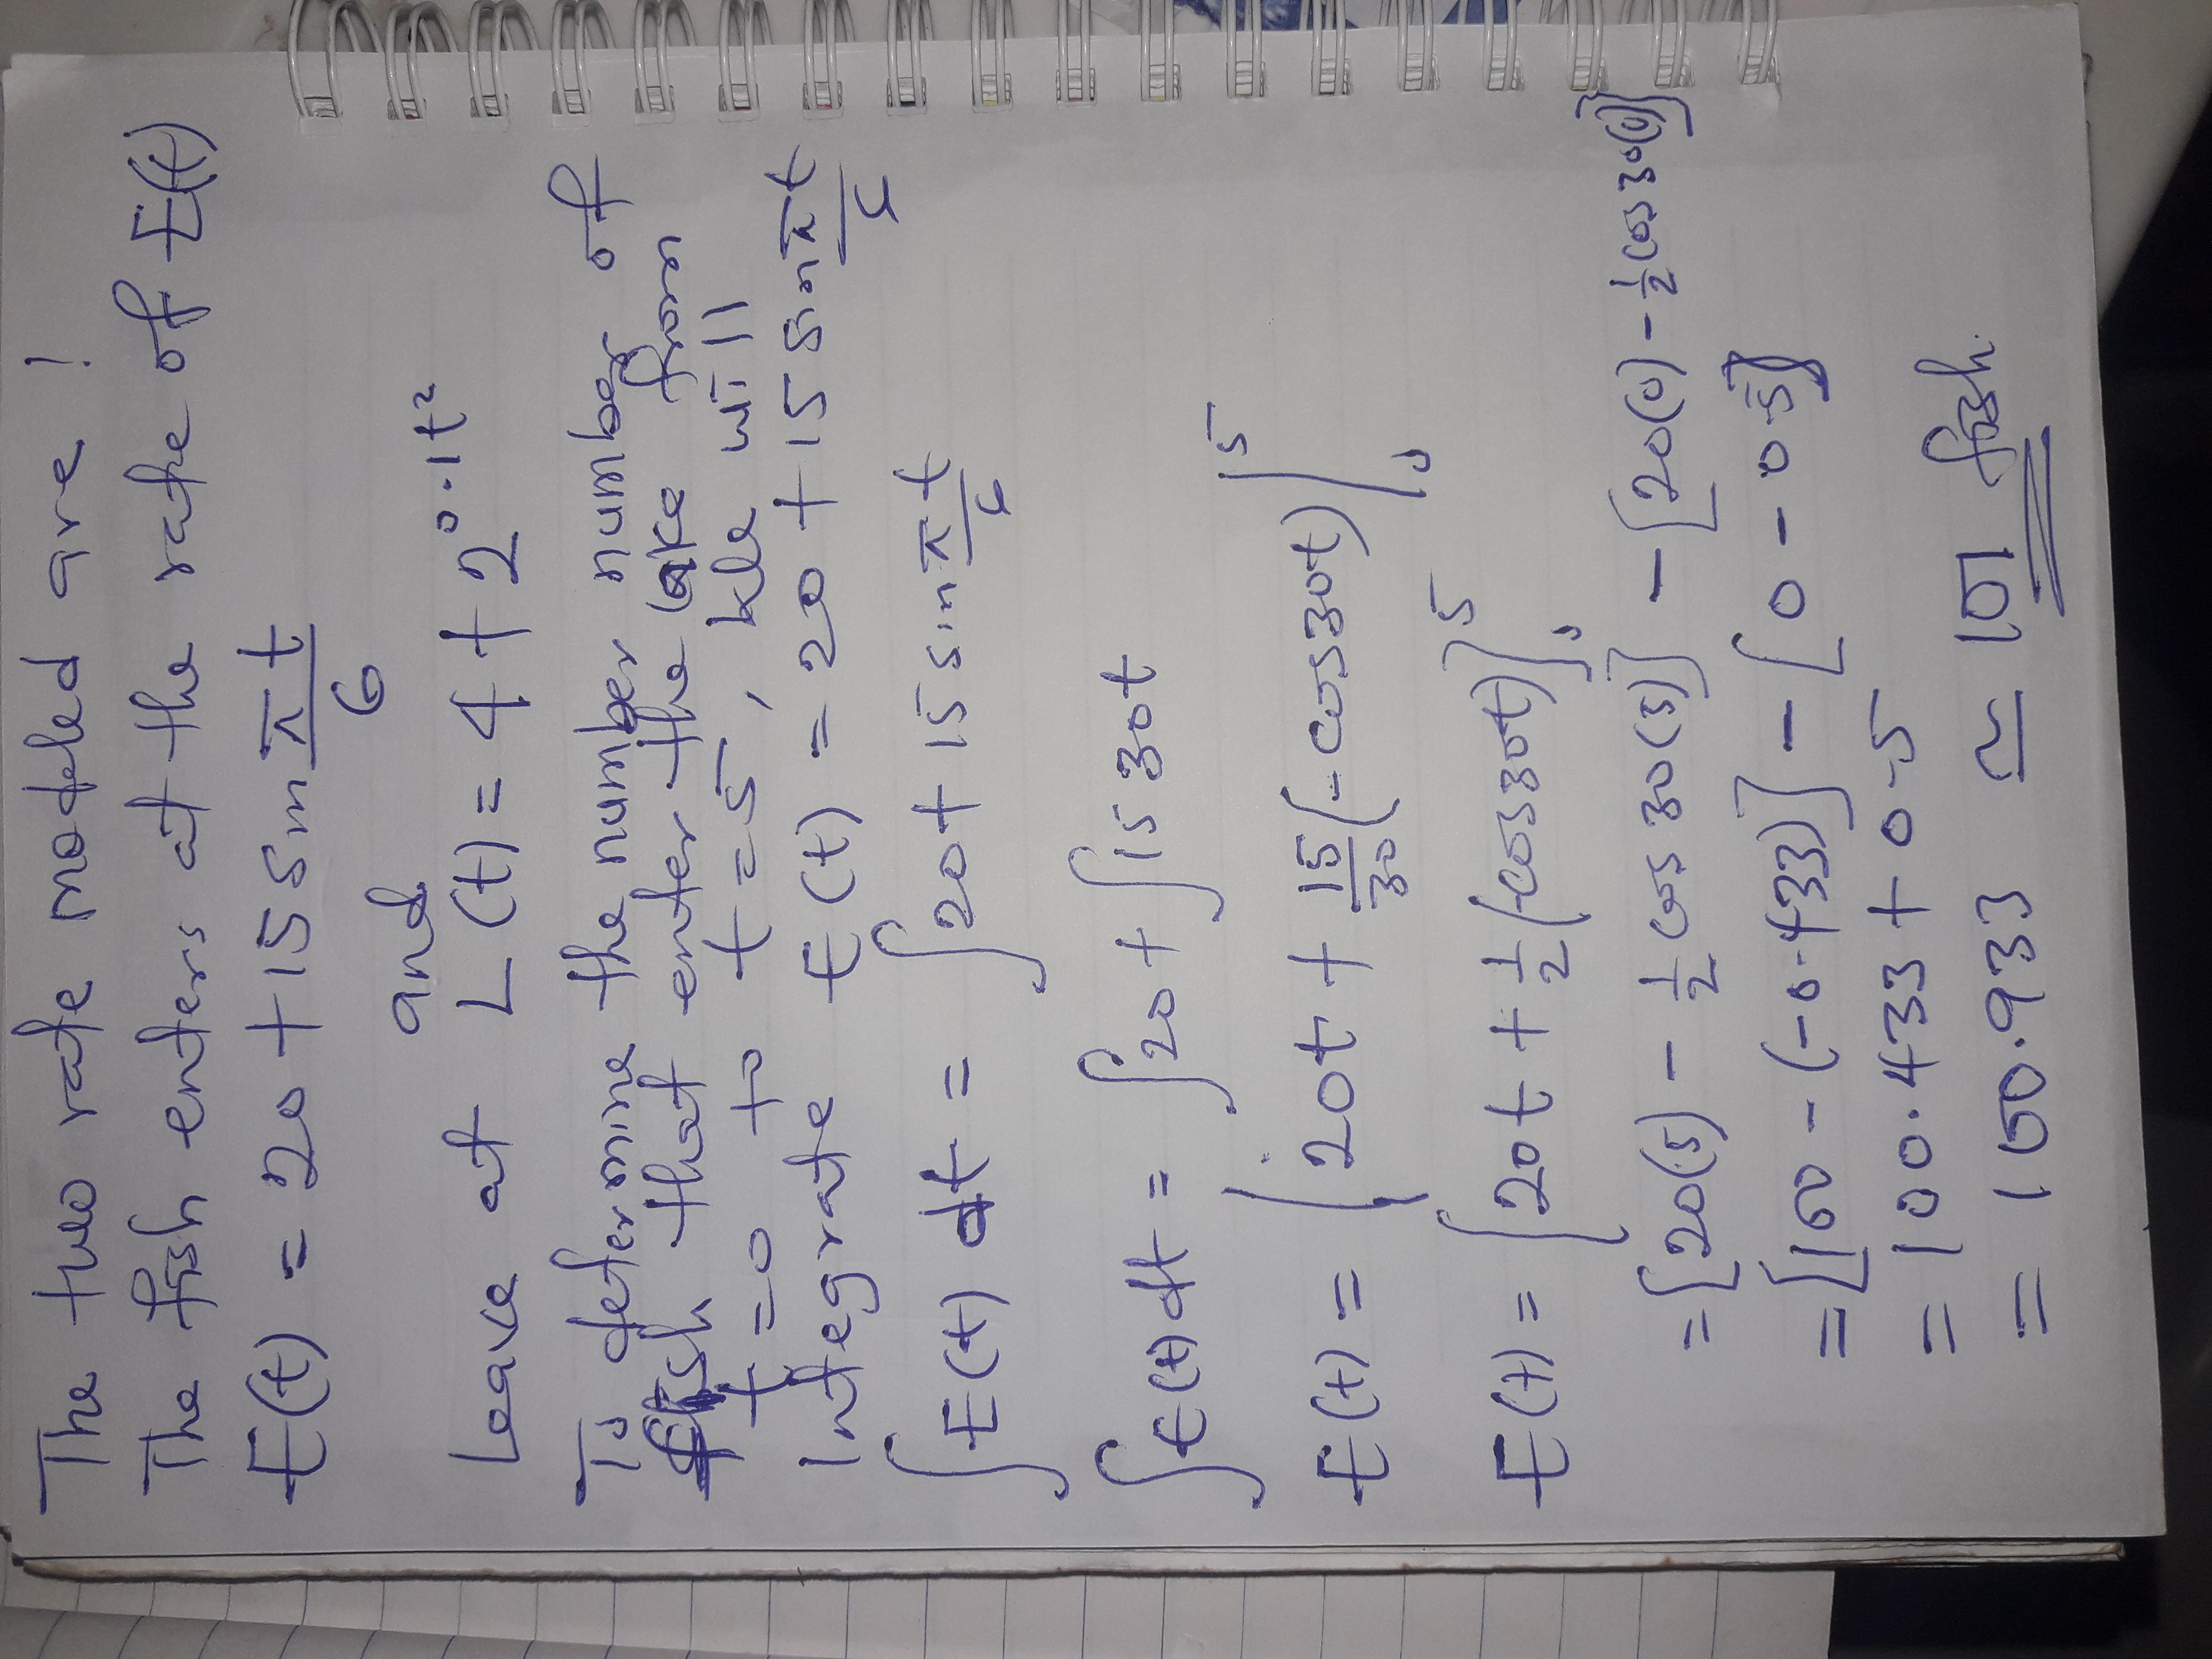 The two rate modeled are !
The fish enters at the rate of E(t)
E(t) = 20 + 15 sin πt/6
and
Leave at L(t) = 4 + 2^0.1t²
To determine the number number of
fish that enter the lake from
t=0 to t=5, we will
Integrate E(t) = 20 + 15 sin πt/6
∫E(t) dt = ∫20 + 15 sin πt/6
∫E(t) dt = ∫20 + ∫15 30t
E(t) = [20t + 15/30 (-cos30t)]₀⁵
E(t) = [20t + 1/2 (-cos30t)]₀⁵
= [20(5) - 1/2 cos 30(5)] - [20(0) - 1/2 cos 30(0)]
= [100 - (-0.433)] - [0 - 0.5]
= 100.433 + 0.5
= 100.933 ≃ 101 fish.